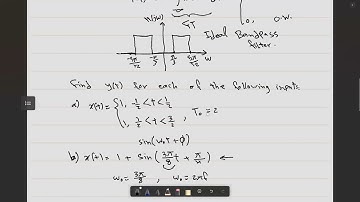 H(jω)
0, o.w.
Ideal Bandpass
filter.
ω
Find y(t) for each of the following inputs:
a) x(t) = { 1, -1/2 < t < 1/2
1, 1/2 < t < 3/2 , T₀ = 2
sin(ω₀t + φ)
b) x(t) = 1 + sin(3π/8 t + π/4) ←
ω₀ = 3π/8 , ω₀ = 2πf